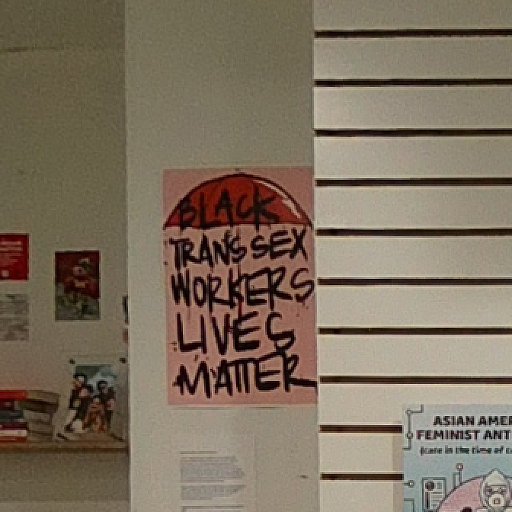 BLACK
TRANS SEX
WORKERS
LIVES
MATTER
ASIAN AMER
FEMINIST ANT
(care in the time of c